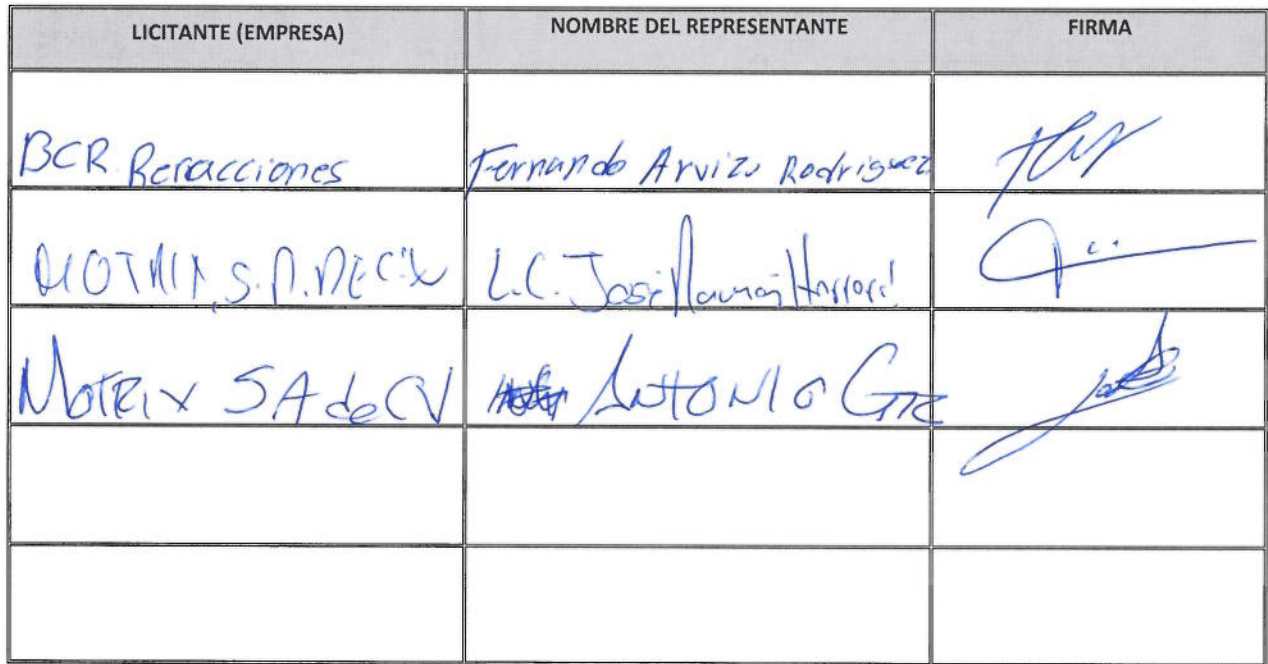 LICITANTE (EMPRESA) NOMBRE DEL REPRESENTANTE FIRMA
BCR Refacciones Fernando Arvizu Rodriguez
MOTRIX, S.A. DE C.V L.C. José Ramón
MOTRIX SA de CV ANTONIO GTZ